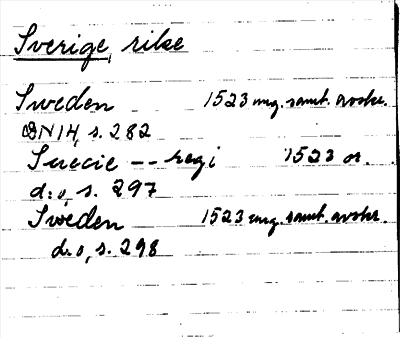 Sverige, rike
Sweden 1523 ung. samt. avskr.
DN 14, s. 282
Suecie -- regi 1523 or.
d:o, s. 297
Sweden 1523 ung. samt. avskr.
d.o, s. 298